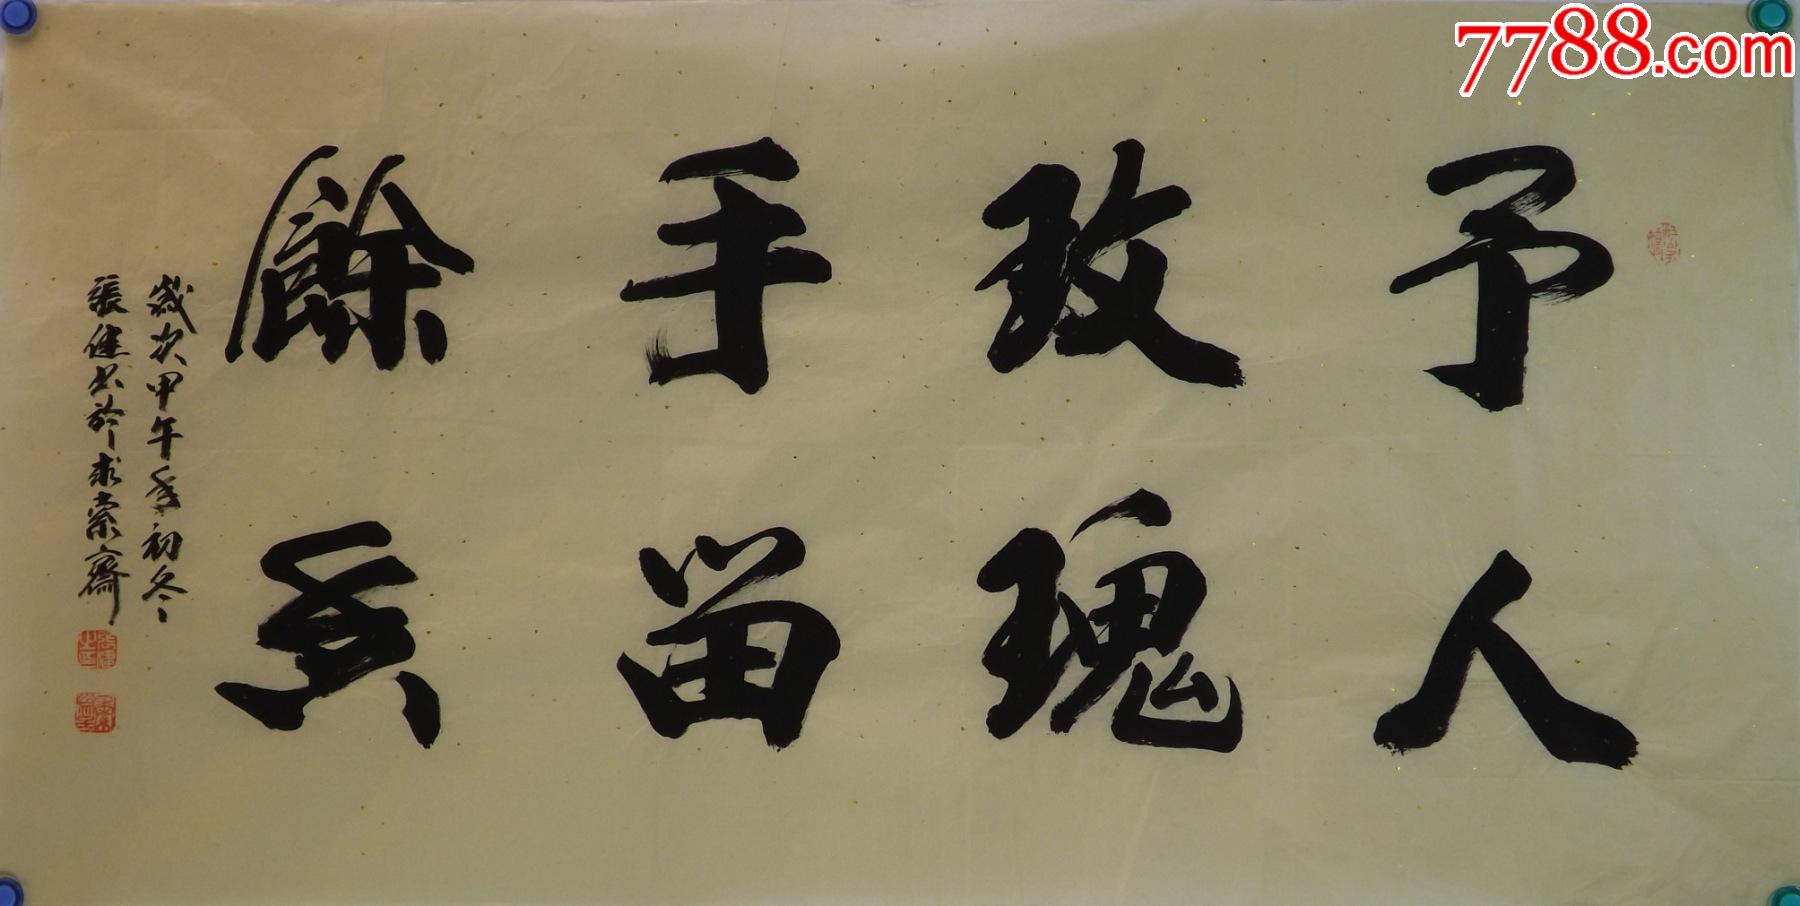 予人
玫瑰
手留
餘香
歲次甲午年初冬
張健書於求索齋
張健之印
7788.com